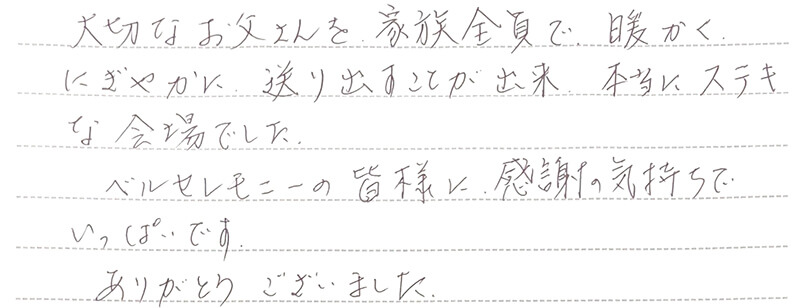 大切なお父さんを、家族全員で、暖かく、
にぎやかに、送り出すことが出来、本当にステキ
な会場でした。
ベルセレモニーの皆様に、感謝の気持ちで
いっぱいです。
ありがとうございました。